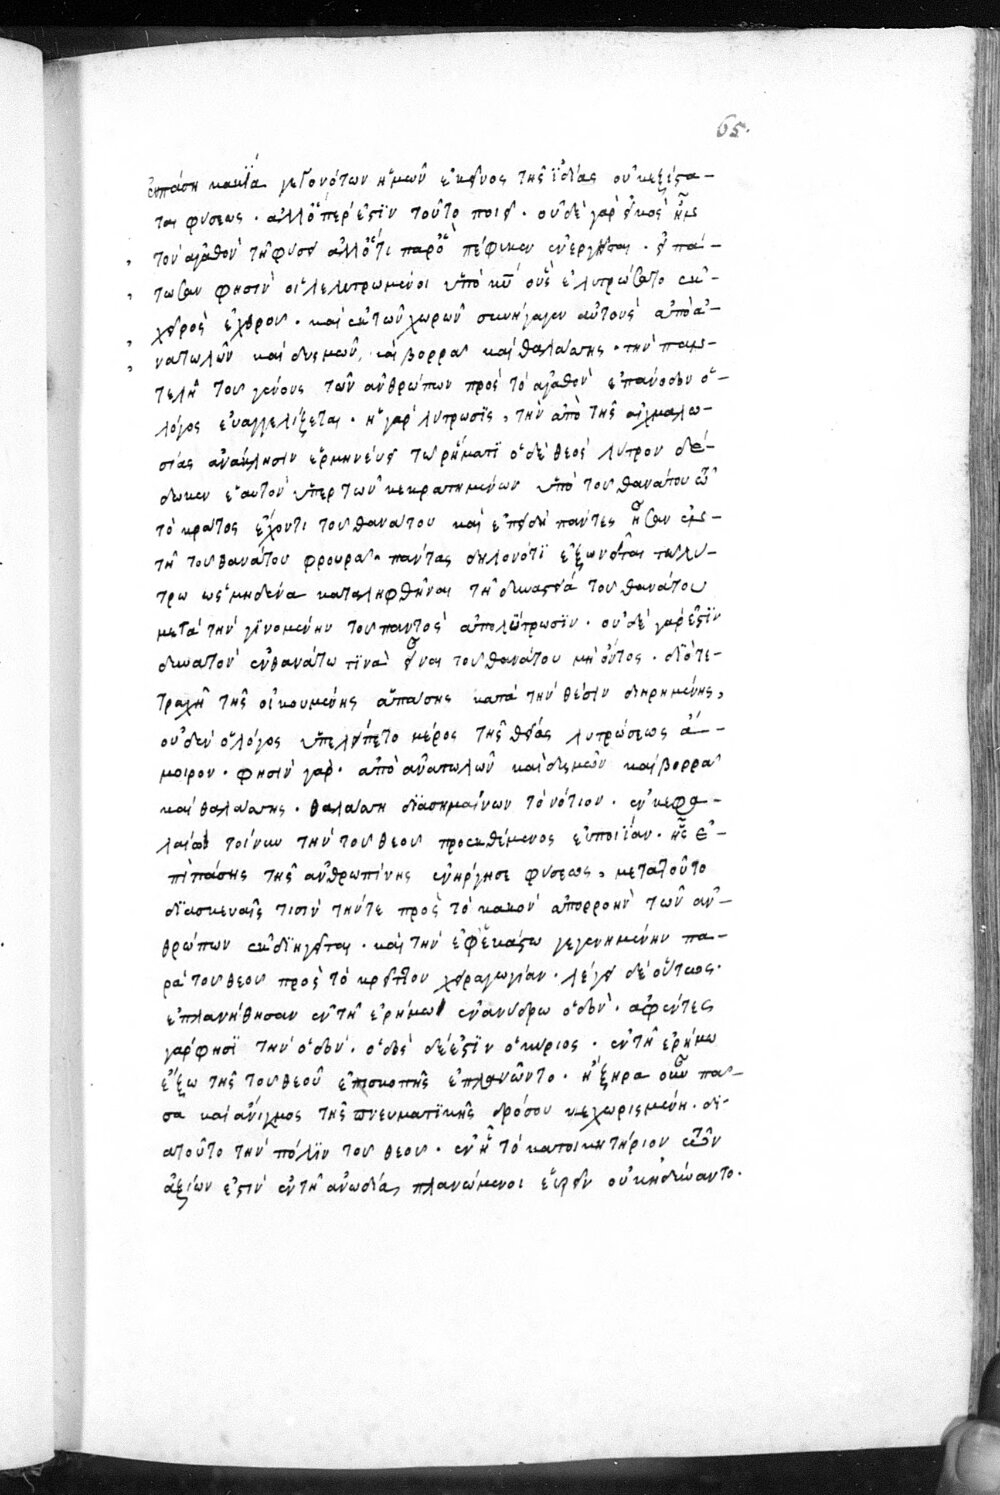 65.
ἐν πάση κακία γεγονότων ἡμῶν ἐκεῖνος τῆς ἰδίας οὐκ ἐξίστα-
ται φύσεως. ἀλλ' ὅπερ ἐστὶν τοῦτο ποιεῖ. οὐδὲ γὰρ εἰκὸς ἦν
τὸν ἀγαθὸν τῆ φύσει ἄλλό τι παρ' ὃ πέφυκεν ἐνεργῆσαι. εἰπά-
τωσαν φησὶν οἱ λελυτρωμένοι ὑπὸ κυ οὓς ἐλυτρώσατο ἐκ
χειρὸς ἐχθροῦ. καὶ ἐκ τῶν χωρῶν συνήγαγεν αὐτοὺς ἀπὸ ἀ-
νατολῶν καὶ δυσμῶν, καὶ βορρᾶ καὶ θαλάσσης. τὴν παν-
τελῆ τοῦ γένους τῶν ἀνθρώπων πρὸς τὸ ἀγαθὸν ἐπάνοδον ὁ
λόγος εὐαγγελίζεται. ἡ γὰρ λύτρωσις, τὴν ἀπὸ τῆς αἰχμαλω-
σίας ἀνάκλησιν ἑρμηνεύει τῶ ῥήματι ὁ δὲ θεὸς λύτρον δέ-
δωκεν ἑαυτὸν ὑπὲρ τῶν κεκρατημένων ὑπὸ τοῦ θανάτου τῶ
τὸ κράτος ἔχοντι τοῦ θανάτου καὶ ἐπειδὴ πάντες ἦσαν ἐν
τῆ τοῦ θανάτου φρουρᾶ. πάντας δηλονότι ἐξωνεῖται τῶ λύ-
τρω ὡς μηδένα καταληφθῆναι τῆ δυναστεία τοῦ θανάτου
μετὰ τὴν γινομένην τοῦ παντὸς ἀπολύτρωσιν. οὐδὲ γάρ ἐστιν
δυνατὸν ἐν θανάτω τινὰ εἶναι τοῦ θανάτου μὴ ὄντος. διὸ τε-
τραχῆ τῆς οἰκουμένης ἁπάσης κατὰ τὴν θέσιν διηρημένης,
οὐδὲν ὁ λόγος ὑπελείπετο μέρος τῆς θείας λυτρώσεως ἄ-
μοιρον. φησὶν γὰρ. ἀπὸ ἀνατολῶν καὶ δυσμῶν καὶ βορρᾶ
καὶ θαλάσσης. θαλάσση διασημαίνων τὸ νότιον. ἐν κεφα-
λαίω τοίνυν τὴν τοῦ θεοῦ προεκθέμενος εὐποιΐαν. ἧς ἐ-
πὶ πάσης τῆς ἀνθρωπίνης ἐνήργησε φύσεως, μετὰ τοῦτο
διασκευαῖς τισὶν τήν τε πρὸς τὸ κακὸν ἀπορροὴν τῶν ἀν-
θρώπων ἐκδιηγεῖται. καὶ τὴν ἐφ' ἑκάστω γεγενημένην πα-
ρὰ τοῦ θεοῦ πρὸς τὸ κρεῖττον χειραγωγίαν. λέγει δὲ οὕτως.
ἐπλανήθησαν ἐν τῆ ἐρήμω ἐν ἀνύδρω ὁδὸν. ἀφέντες
γάρ φησι τὴν ὁδὸν. ὁδὸς δέ ἐστιν ὁ κύριος. ἐν τῆ ἐρήμω
ἔξω τῆς τοῦ θεοῦ ἐπισκοπῆς ἐπλανῶντο. ἡ ξηρὰ οὖν πᾶ-
σα καὶ ἄνικμος τῆς πνευματικῆς δρόσου κεχωρισμένη. δι-
α τοῦτο τὴν πόλιν τοῦ θεοῦ. ἐν ἧ τὸ κατοικητήριον τῶν
ἀξίων ἐστὶν ἐν τῆ ἀνωδία, πλανώμενοι εὑρεῖν οὐκ ἠδύναντο.